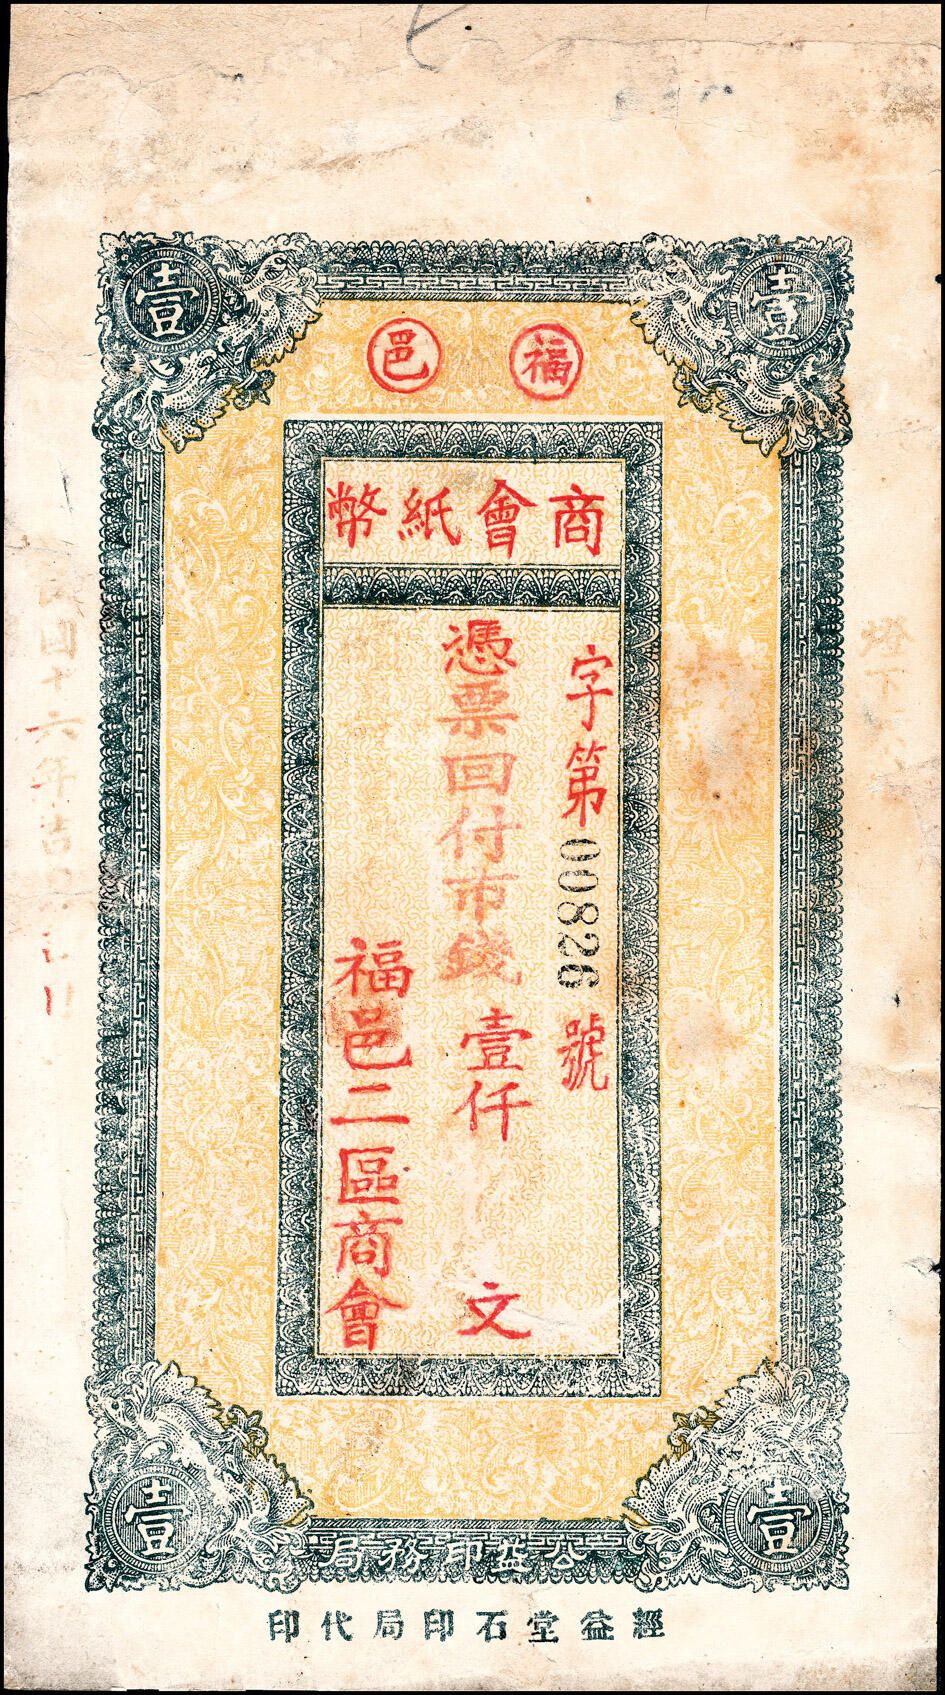 壹 壹
福邑
商會紙幣
字第00826號
憑票回付市錢壹仟文
福邑二區商會
壹 壹
公益印務局
經益堂石印局代印